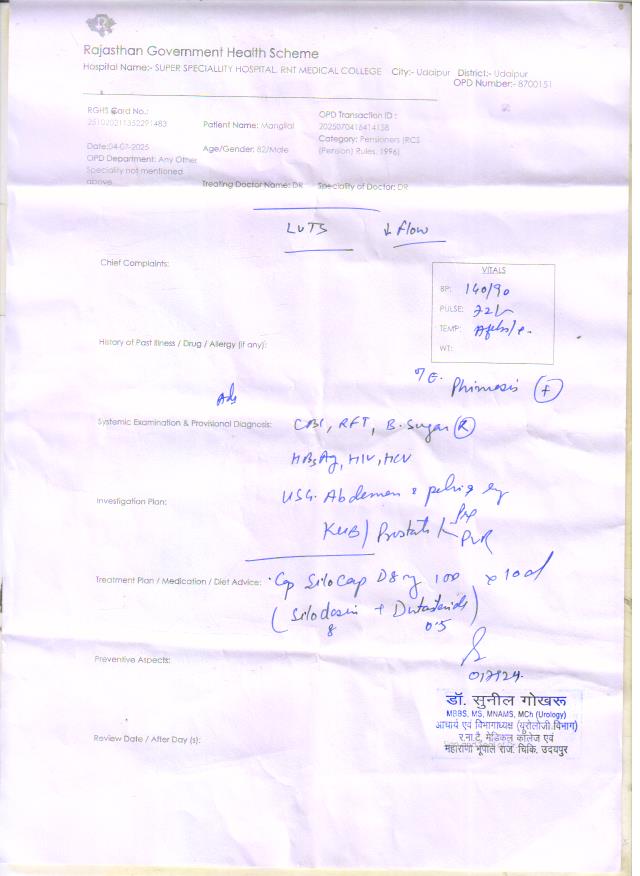 Rajasthan Government Health Scheme
Hospital Name:- SUPER SPECIALLITY HOSPITAL, RNT MEDICAL COLLEGE City:- Udaipur District:- Udaipur
OPD Number:- 8700151
RGHS Card No.:
Patient Name: Manglial
OPD Transaction ID :
Category: Pensioners (RCS
(Pension) Rules, 1996)
Date:04-07-2025
Age/Gender: 82/Male
OPD Department: Any Other
Speciality not mentioned
above
Treating Doctor Name: DR
Speciality of Doctor: DR
LUTS ↓ flow
Chief Complaints:
VITALS
BP: 140/90
PULSE: 72/
TEMP:
WT:
History of Past Illness / Drug / Allergy (if any):
Phimosis (+)
Adv
Systemic Examination & Provisional Diagnosis: CBC, RFT, B. Sugar (R)
HBsAg, HIV, HCV
Investigation Plan:
USG. Abdomen & pelvis
KUB/ Prostate PVR
Treatment Plan / Medication / Diet Advice: Cap SiloCap D8 mg x 10d
(Silodosin + Dutasteride)
8 0.5
Preventive Aspects:
डॉ. सुनील गोखरू
MBBS, MS, MNAMS, MCh (Urology)
आचार्य एवं विभागाध्यक्ष (यूरोलोजी विभाग)
र.ना.टै. मेडिकल कॉलेज एवं
महाराणा भूपाल राज. चिकि. उदयपुर
Review Date / After Day (s):